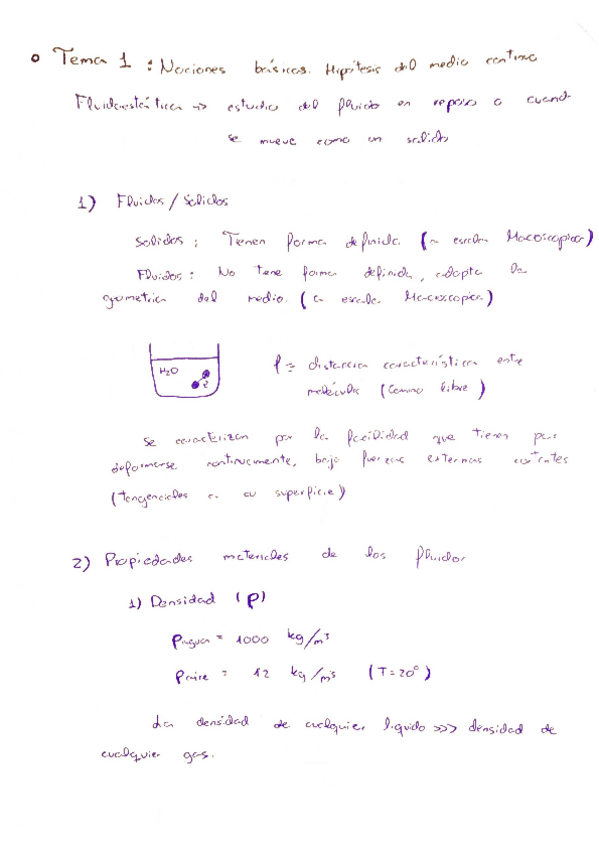 o Tema 1 : Nociones básicas. Hipótesis del medio continuo
Fluidoestática → estudio del fluido en reposo o cuand
se mueve como un solido
1) Fluidos / Solidos
Solidos : Tienen forma definida. (a escala Macoscopica)
Fluidos : No tiene forma definida, adopta la
geometria del medio. (a escala Macoscopica)
H₂O
l
l = distancia característica entre
molécula (Camino libre)
Se caracterizan por la facilidad que tienen para
deformarse continuamente, bajo fuerzas externas cortantes
(tangenciales a su superficie)
2) Propiedades materiales de los fluidos
1) Densidad (ρ)
ρagua = 1000 kg/m³
ρaire = 12 kg/m³ (T=20°)
La densidad de cualquier liquido >>> densidad de
cualquier gas.